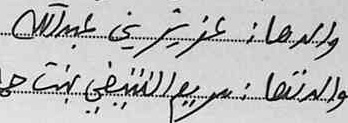 والدها: عزيز بن عبدالله
والدتها: مريم التنيفي بنت